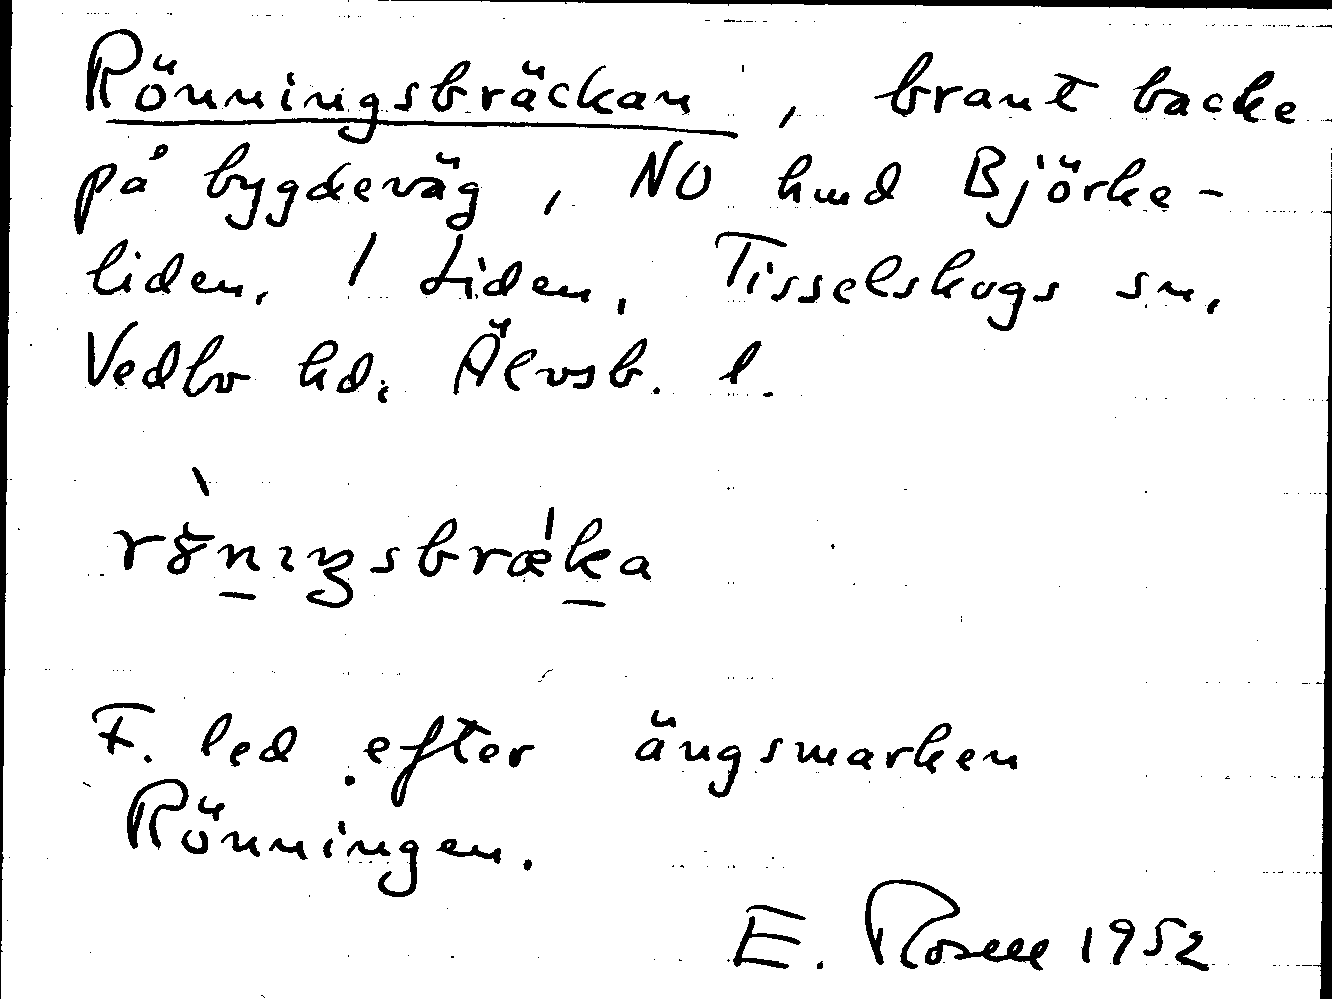 Rönningsbräckan, brant backe
på bygdeväg, NO hmd Björke-
liden, 1 Liden, Tisselskogs sn,
Vedbo hd, Älvsb. l.
F. led efter ängsmarken
Rönningen.
E. Rosell 1952